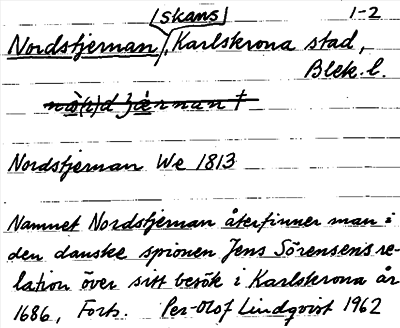 |skans| 1-2
Nordstjernan, Karlskrona stad,
Blek. l.
Nordstjernan We 1813
Namnet Nordstjernan återfinner man i
den danske spionen Jens Sörensens re-
lation över sitt besök i Karlskrona år
1686, Forts. Per-Olof Lindqvist 1962